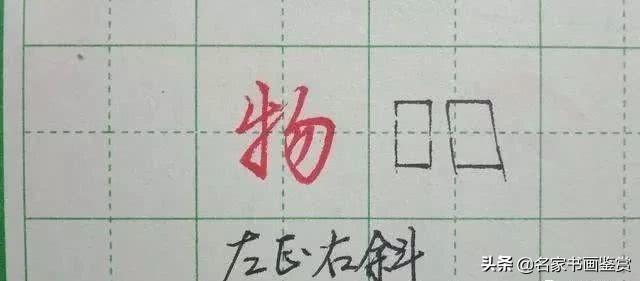 物
左正右斜
头条 @名家书画鉴赏